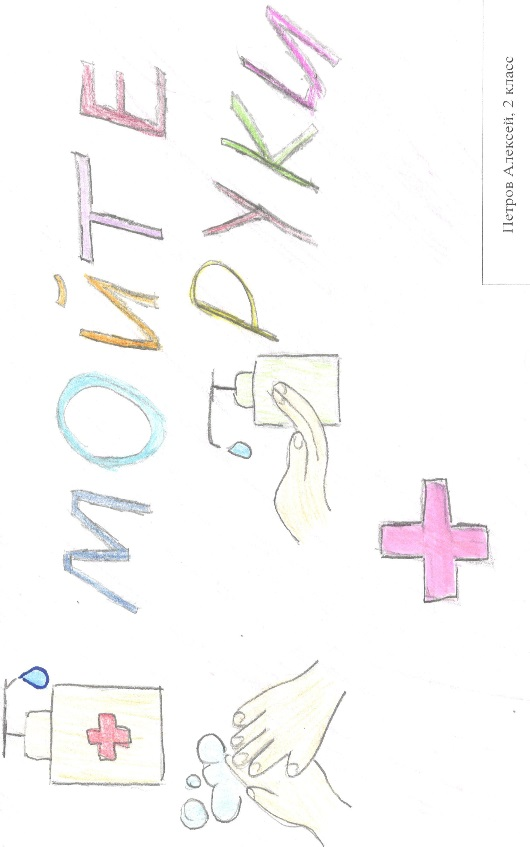 МОЙТЕ
РУКИ
Петров Алексей, 2 класс